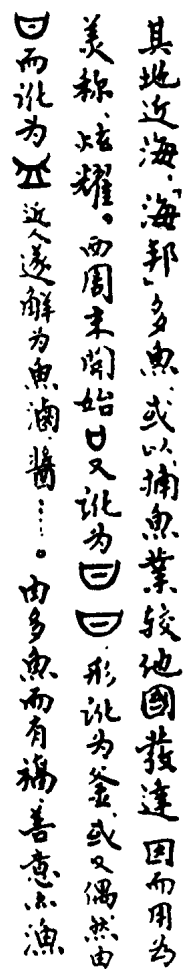 其地近海，「海邦」多魚，或以捕魚業較他國發達因而用為
美称、炫耀。西周末開始口又訛为 形訛为釜，或又偶然由
而訛为 近人遂解为魚滷、醬……。由多魚而有福、善意亦漁